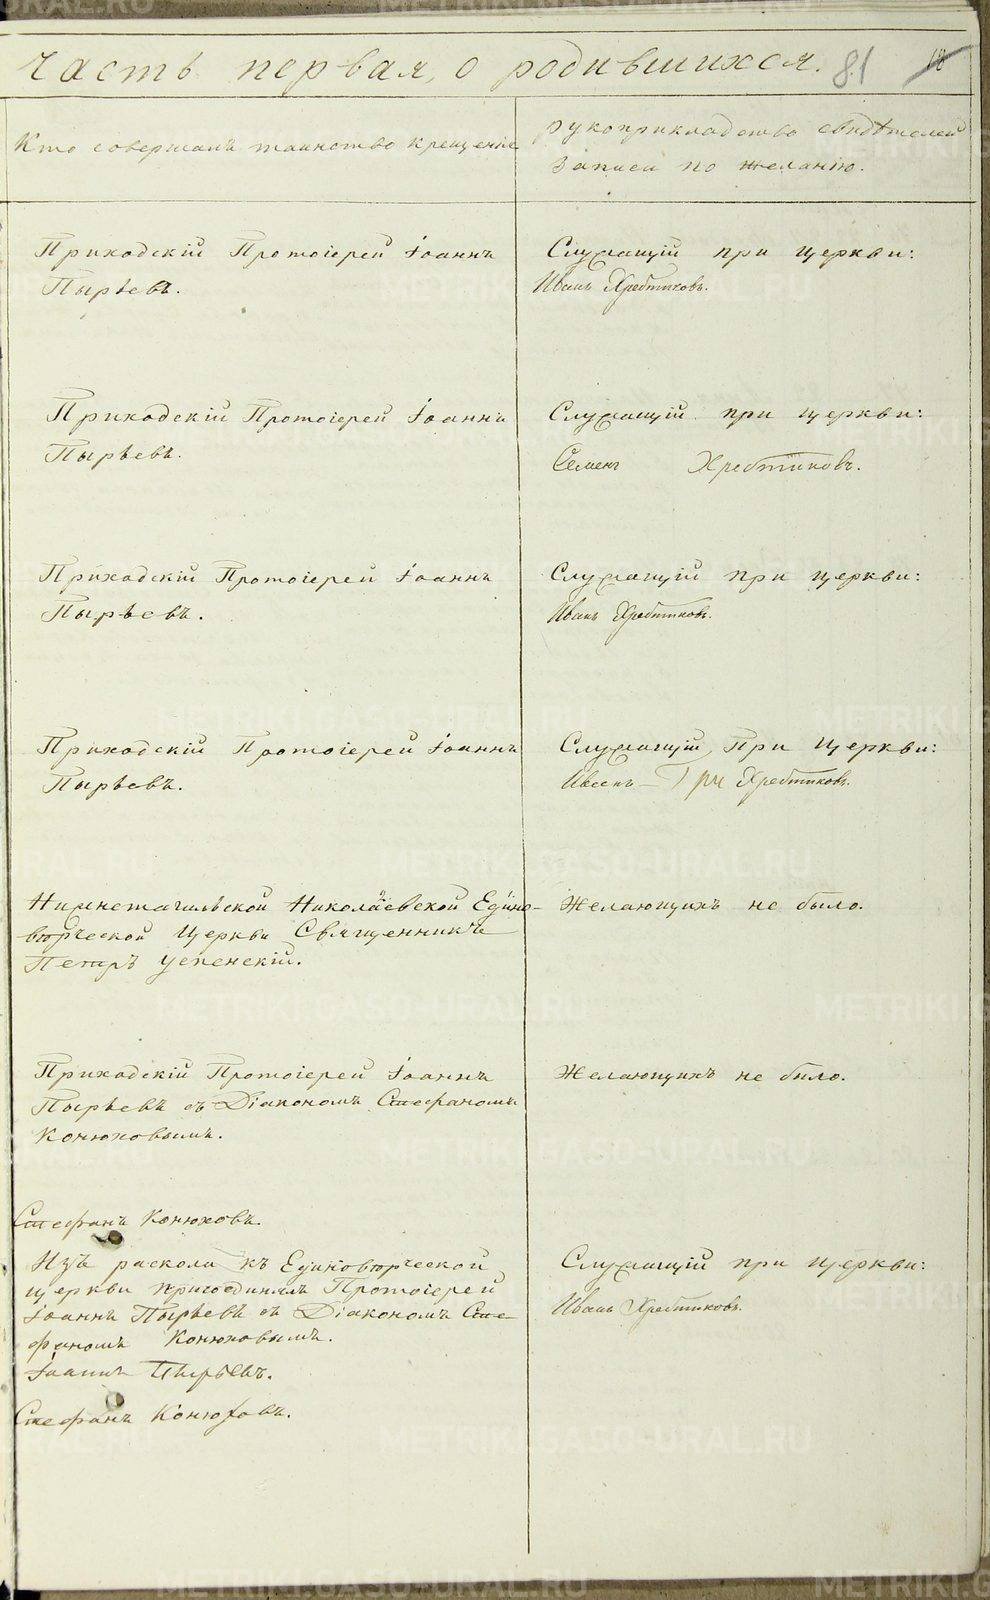 Часть первая, о родившихся. 81 18
Кто совершалъ таинство крещенiе
рукоприкладство свидѣтелей
записи по желанiю.
Приходскiй Протоiерей Iоаннъ
Пырьевъ.
Служащiй при церкви:
Иванъ Хребтиковъ.
Приходскiй Протоiерей Iоаннъ
Пырьевъ.
Служащiй при церкви:
Семенъ Хребтиковъ.
Приходскiй Протоiерей Iоаннъ
Пырьевъ.
Служащiй при церкви:
Иванъ Хребтиковъ.
Приходскiй Протоiерей Iоаннъ
Пырьевъ.
Служащiй при церкви:
Иванъ Гри Хребтиковъ.
Нижнетагильской Николаевской Едино-
вѣрческой Церкви Священникъ
Петръ Успенскiй.
Желающихъ не было.
Приходскiй Протоiерей Iоаннъ
Пырьевъ съ Дiакономъ Стефаномъ
Конюховымъ.
Желающихъ не было.
Стефанъ Конюховъ.
Изъ раскола къ Единовѣрческой
церкви присоединялъ Протоiерей
Iоаннъ Пырьевъ съ Дiакономъ Сте-
фаномъ Конюховымъ.
Iоаннъ Пырьевъ.
Стефанъ Конюховъ.
Служащiй при церкви:
Иванъ Хребтиковъ.
METRIKI.GASO-URAL.RU